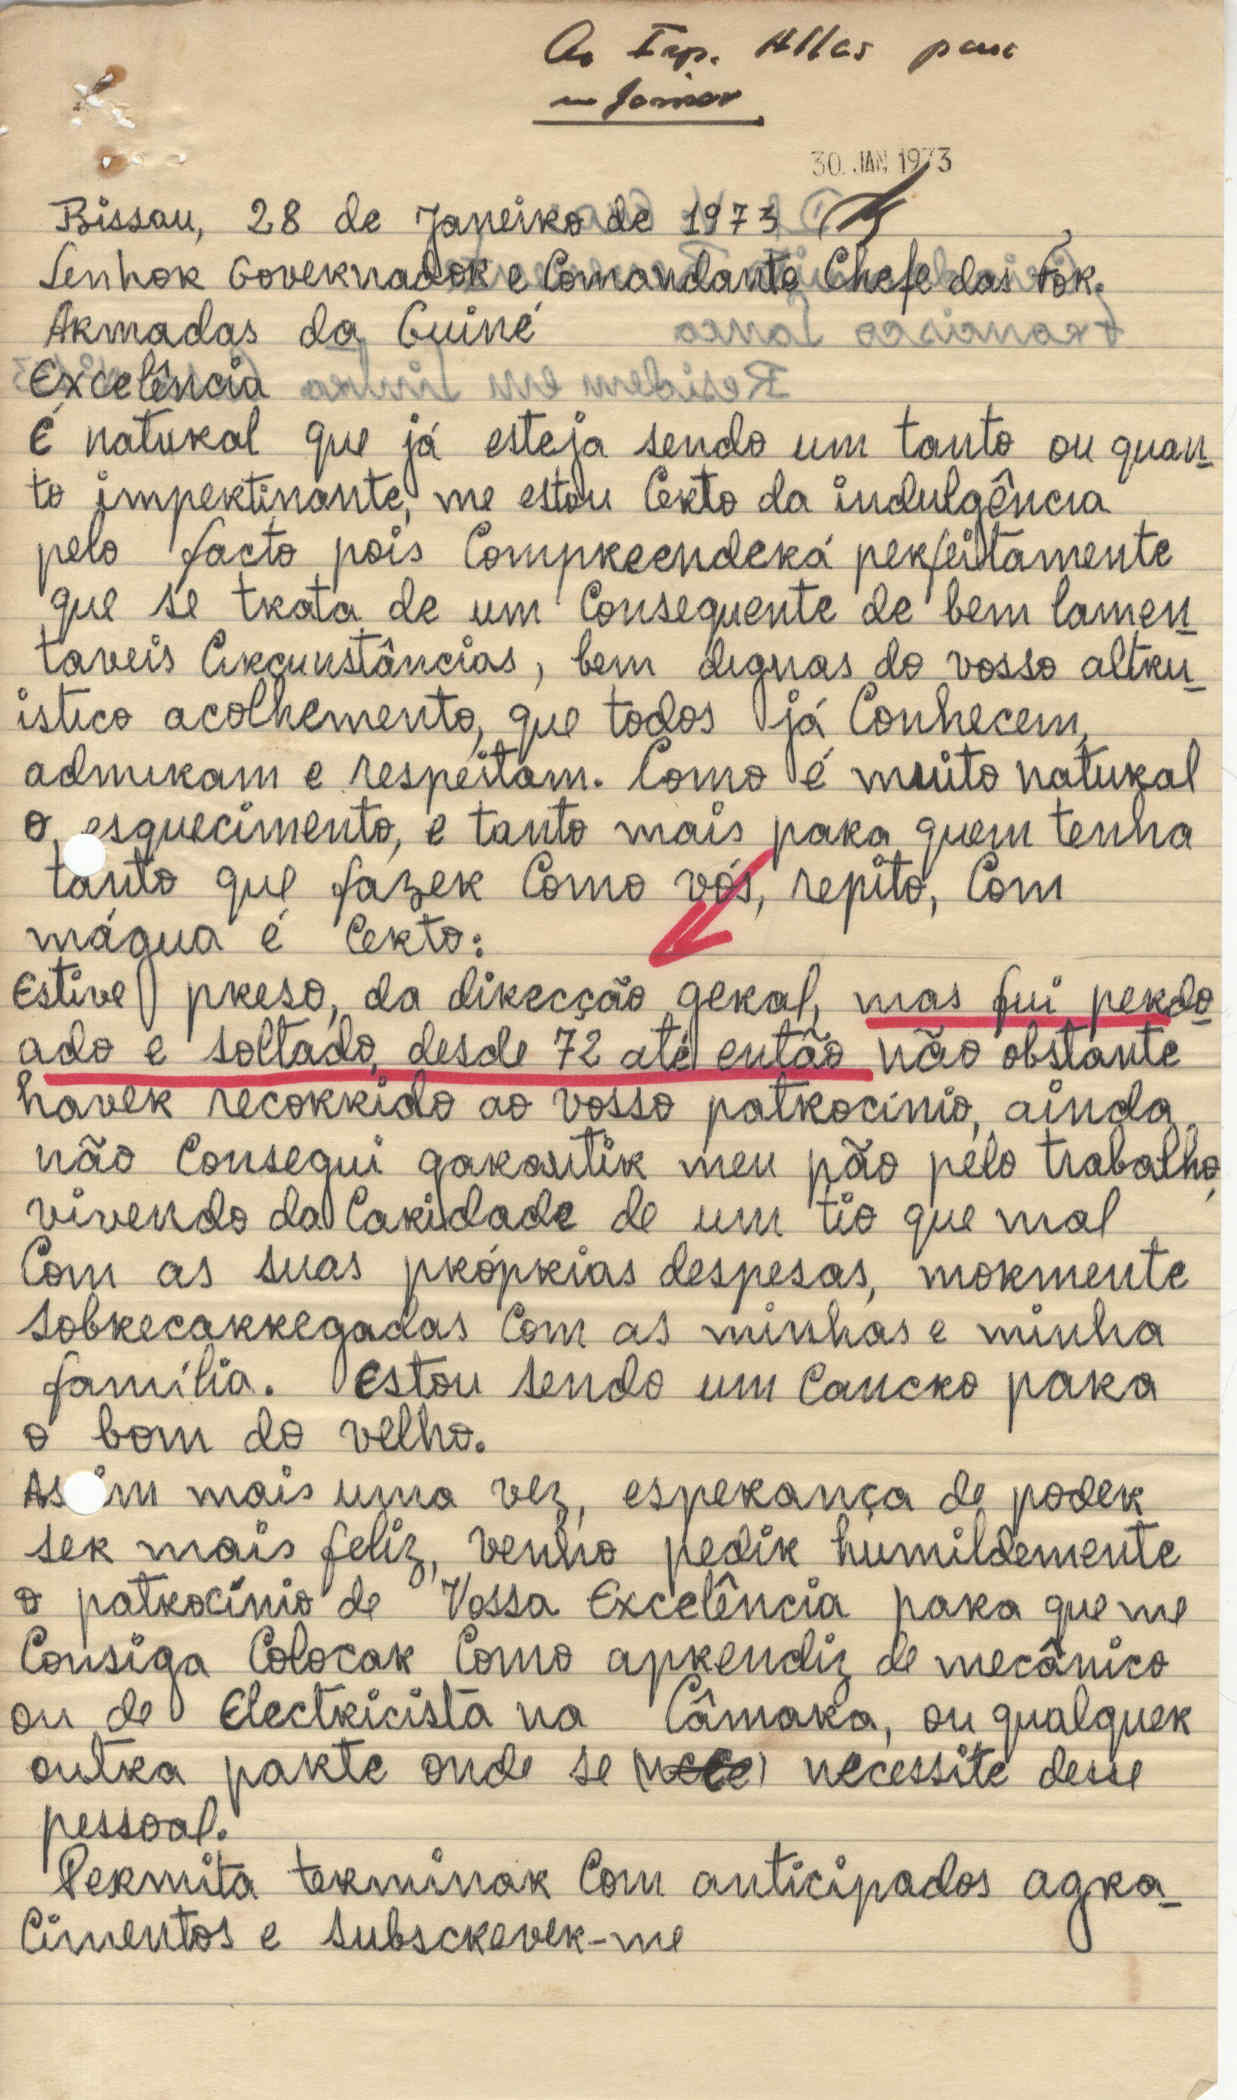 Ao Insp. Allas para
informar
30. JAN 1973
Bissau, 28 de Janeiro de 1973
Senhor Governador e Comandante Chefe das For.
Armadas da Guiné
Excelência
É natural que já esteja sendo um tanto ou quan-
to impertinante, me estou Certo da indulgência
pelo facto pois Compreenderá perfeitamente
que se trata de um Consequente de bem lamen-
taveis Circunstâncias, bem dignas do vosso altru-
istico acolhemento, que todos já Conhecem,
admiram e respeitam. Como é muito natural
o esquecimento, e tanto mais para quem tenha
tanto que fazer Como vós, repito, Com
mágua é Certo:
Estive preso, da direcção geral, mas fui perdo-
ado e soltado, desde 72 até então não obstante
haver recorrido ao vosso patrocínio, ainda
não Consegui garantir meu pão pelo trabalho,
vivendo da Caridade de um tio que mal
Com as suas próprias despesas, mormente
sobrecarregadas Com as minhas e minha
família. Estou sendo um Cancro para
o bom do velho.
Assim mais uma vez, esperança de poder
ser mais feliz, venho pedir humildemente
o patrocínio de Vossa Excelência para que me
Consiga Colocar Como aprendiz de mecânico
ou de Electricista na Câmara, ou qualquer
outra parte onde se (nece) necessite desse
pessoal.
Permita terminar Com anticipados agra-
Cimentos e subscrever-me